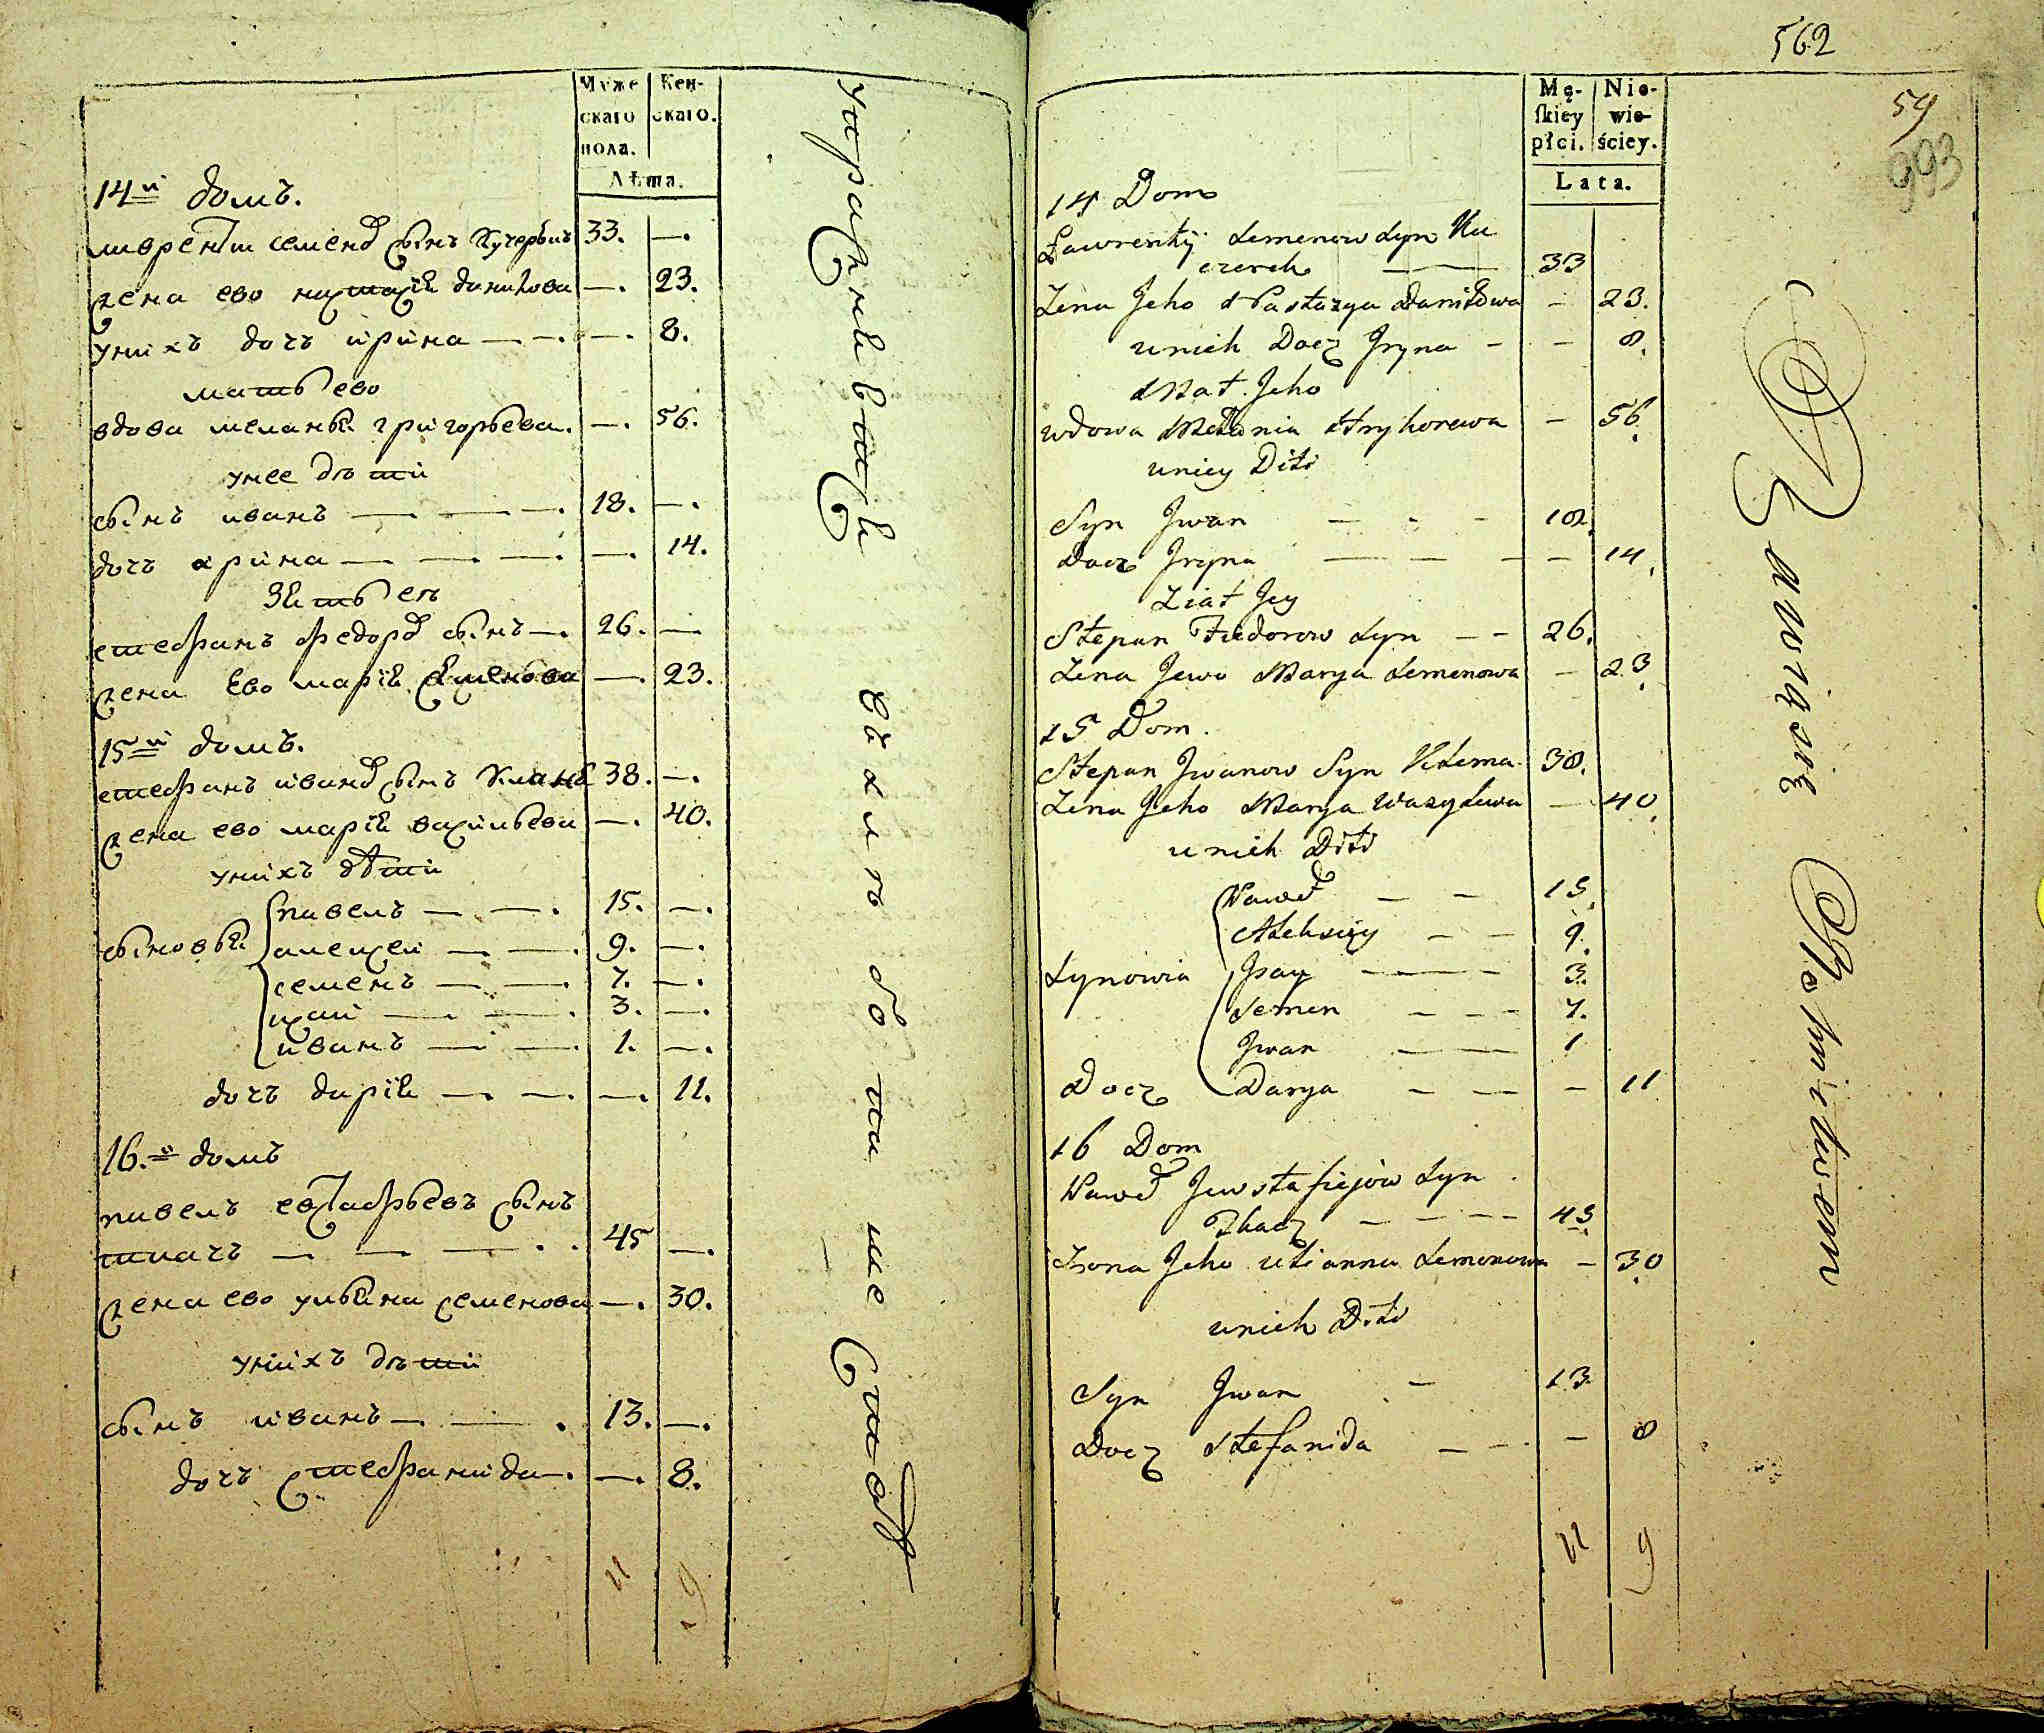 Муже
скаго
пола.
Жен-
скаго.
Лѣта.
14й домъ.
лаврентїи семенов сынъ Кучерык 33. —.
жена ево настасія данилова —. 23.
унихъ дочъ ирина — —. —. 8.
мать ево
вдова меланья григорьева. —. 56.
унее дѣти
сынъ иванъ — — —. 18. —.
дочъ арина — — —. —. 14.
Зять еѣ
стефанъ федоров сынъ —. 26. —
жена Ево марія Семенова —. 23.
15й домъ.
стефанъ иванов сынъ 38. —.
жена ево марія васильева —. 40.
унихъ дѣти
сыновья
павелъ — —. 15. —.
алексеи — —. 9. —.
семенъ — —. 7. —.
исаи — —. 3. —.
иванъ — —. 1. —.
дочъ дарія — —. —. 11.
16.й домъ
павелъ евстафьевъ сынъ
ткачъ — — — . . 45 —.
жена ево ульяна семенова —. 30.
унихъ дѣти
сынъ иванъ —. — . 13. —.
дочъ стефанида —. —. 8.
11 9
562
59
993
Mę-
skiey
płci.
Nie-
wie-
ściey.
Lata.
14 Dom
Ławrentÿ Semenow Syn Ku
czeryk — 33
Zena Jeho Nastazya Daniłowa — 23.
unich Docz Jryna - - 8.
Mat Jeho
wdowa Mełania Hryhorewa — 56.
uniey Diti
Syn Jwan — - - 18.
Docz Jryna — — - - 14.
Ziat Jey
Stepan Fiedorow Syn - - 26.
Zena Jewo Marya Semenowa — 23.
15 Dom.
Stepan Jwanow Syn 38.
Zena Jeho Marya Wasylewa — 40.
unich Diti
Synowia
Paweł — - 15.
Aleksiey - - 9.
Jsay — — 3.
Semen - - - 7.
Jwan — — 1
Docz Darya - — - - 11
16 Dom
Paweł Jewstafiejow Syn
Tkacz - - - - 45.
Zona Jeho Ulianna Semenowa - 30
unich Diti
Syn Jwan — 13
Docz Stefanida — - . - 8
11 9